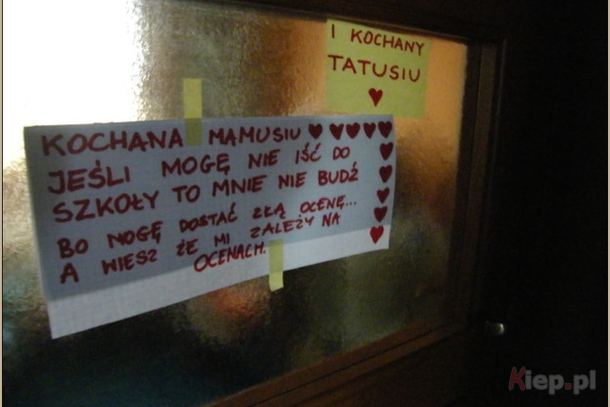 I KOCHANY
TATUSIU
KOCHANA MAMUSIU
JEŚLI MOGĘ NIE IŚĆ DO
SZKOŁY TO MNIE NIE BUDŹ
BO MOGĘ DOSTAĆ ZŁĄ OCENĘ...
A WIESZ ŻE MI ZALEŻY NA
OCENACH.
Kiep.pl